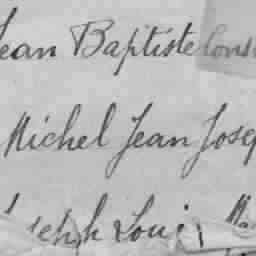 Jean Baptiste Cons
Michel Jean Josep
Joseph Louis Ma